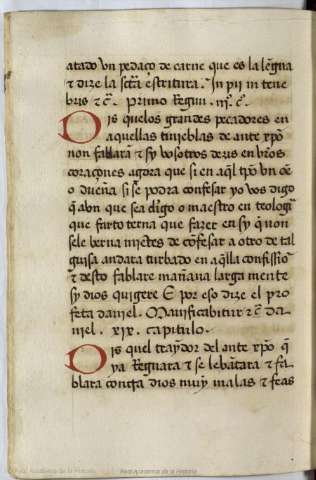 atado vn pedaço de carne que es la lẽgua
⁊ dize la sct̃a escritura. Jn pii in tene
bris ⁊ c̃. primo Regũ. ii̊. c̃.
Dis quelos grandes pecadores en
aquellas tinieblas de ante xpõ
non fablarã ⁊ sy vosotros dezis en vr̃os
coraçones agora que si en aq̃l tp̃o vn oẽ
o dueña si se podra confesar yo vos digo
q̃ avn que sea clr̃igo o maestro en teologia
que farto terna que fazer en sy q̃ non
sele verna miẽtes de cõfesar a otro de tal
guisa andara turbado en aq̃lla confissiõ
⁊ desto fablare mañana larga mente
sy dios quisiere E por eso dize el pro
feta daniel.
niel. xix. capitulo.
Dis quel traydor del ante xpõ q̃
ya Regnara ⁊ se leuãtara ⁊ fa
blara contra dios muy malas ⁊ feas
Real Academia de la Historia
Real Academia de la Historia